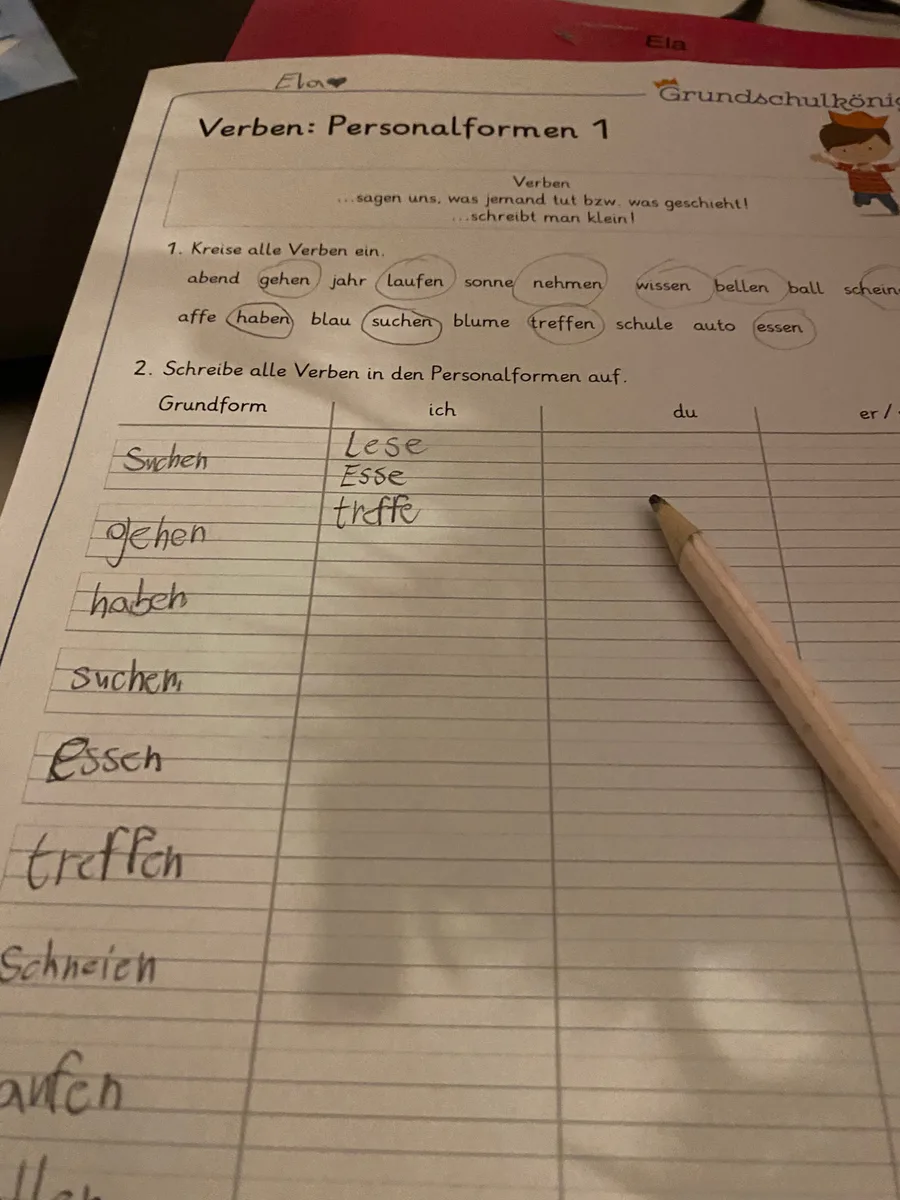 Ela
Ela♥
Grundschulköni
Verben: Personalformen 1
Verben
...sagen uns, was jemand tut bzw. was geschieht!
...schreibt man klein!
1. Kreise alle Verben ein.
abend gehen jahr laufen sonne nehmen wissen bellen ball schein
affe haben blau suchen blume treffen schule auto essen
2. Schreibe alle Verben in den Personalformen auf.
Grundform ich du er /
Suchen Lese
Esse
gehen treffe
haben
suchen
Essen
treffen
Schneien
aufen
llen